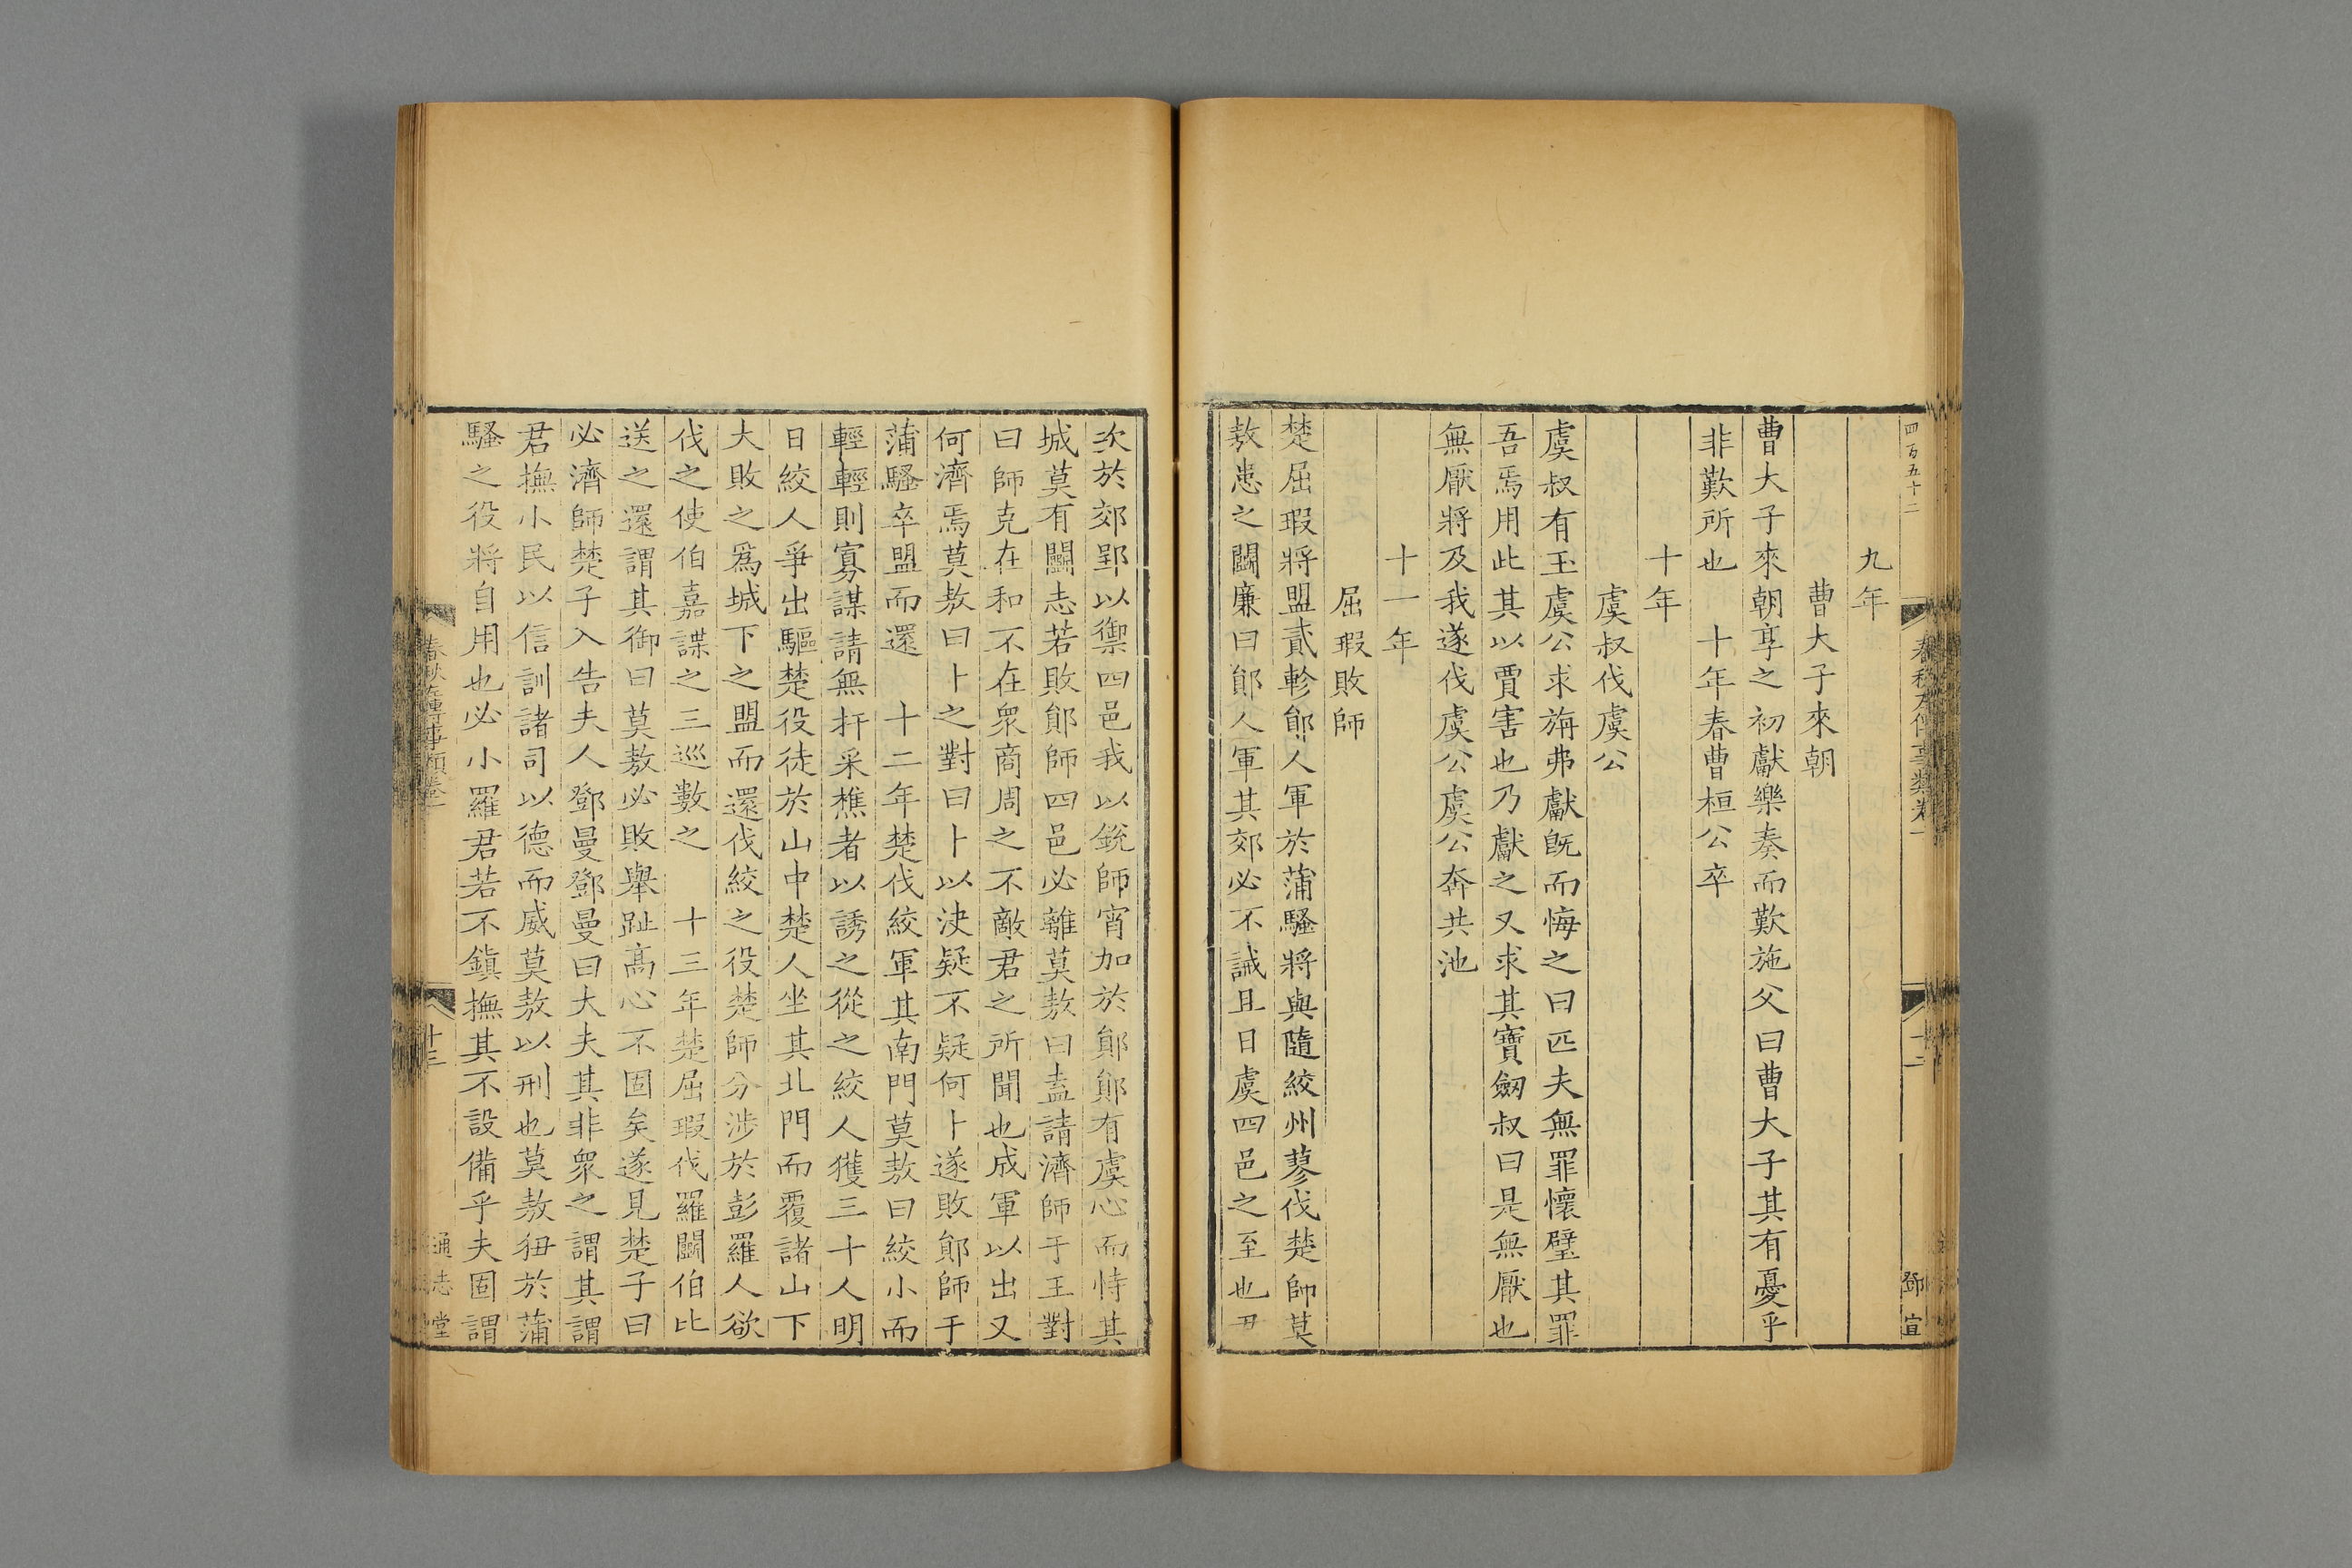 四百五十二
春秋左傳事類卷一
十二
鄧宣
九年
曹大子來朝
曹大子來朝享之初獻樂奏而歎施父曰曹大子其有憂乎
非歎所也　十年春曹桓公卒
十年
虞叔伐虞公
虞叔有玉虞公求旃弗獻旣而悔之曰匹夫無罪懷璧其罪
吾焉用此其以賈害也乃獻之又求其寶劒叔曰是無厭也
無厭將及我遂伐虞公虞公奔共池
十一年
屈瑕敗師
楚屈瑕將盟貳軫鄖人軍於蒲騷將與隨絞州蓼伐楚師莫
敖患之鬬廉曰鄖人軍其郊必不誡且日虞四邑之至也君
次於郊郢以禦四邑我以銳師宵加於鄖鄖有虞心而恃其
城莫有鬬志若敗鄖師四邑必離莫敖曰盍請濟師于王對
曰師克在和不在衆商周之不敵君之所聞也成軍以出又
何濟焉莫敖曰卜之對曰卜以決疑不疑何卜遂敗鄖師于
蒲騷卒盟而還　十二年楚伐絞軍其南門莫敖曰絞小而
輕輕則寡謀請無扞采樵者以誘之從之絞人獲三十人明
日絞人爭出驅楚役徒於山中楚人坐其北門而覆諸山下
大敗之爲城下之盟而還伐絞之役楚師分涉於彭羅人欲
伐之使伯嘉諜之三巡數之　十三年楚屈瑕伐羅鬬伯比
送之還謂其御曰莫敖必敗舉趾高心不固矣遂見楚子曰
必濟師楚子入告夫人鄧曼鄧曼曰大夫其非衆之謂其謂
君撫小民以信訓諸司以德而威莫敖以刑也莫敖狃於蒲
騷之役將自用也必小羅君若不鎮撫其不設備乎夫固謂
春秋左傳事類卷一
十三
通志堂